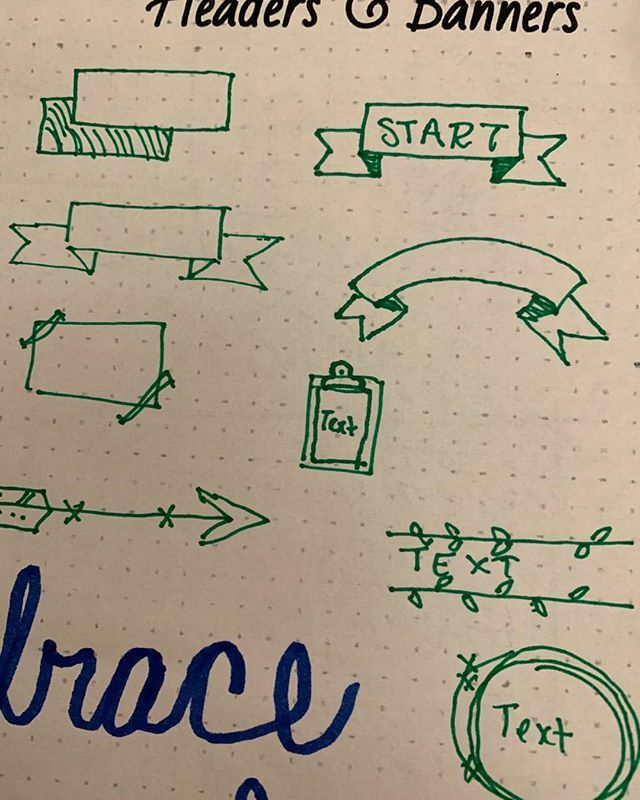 Headers & Banners
START
Text
TEXT
brace
Text